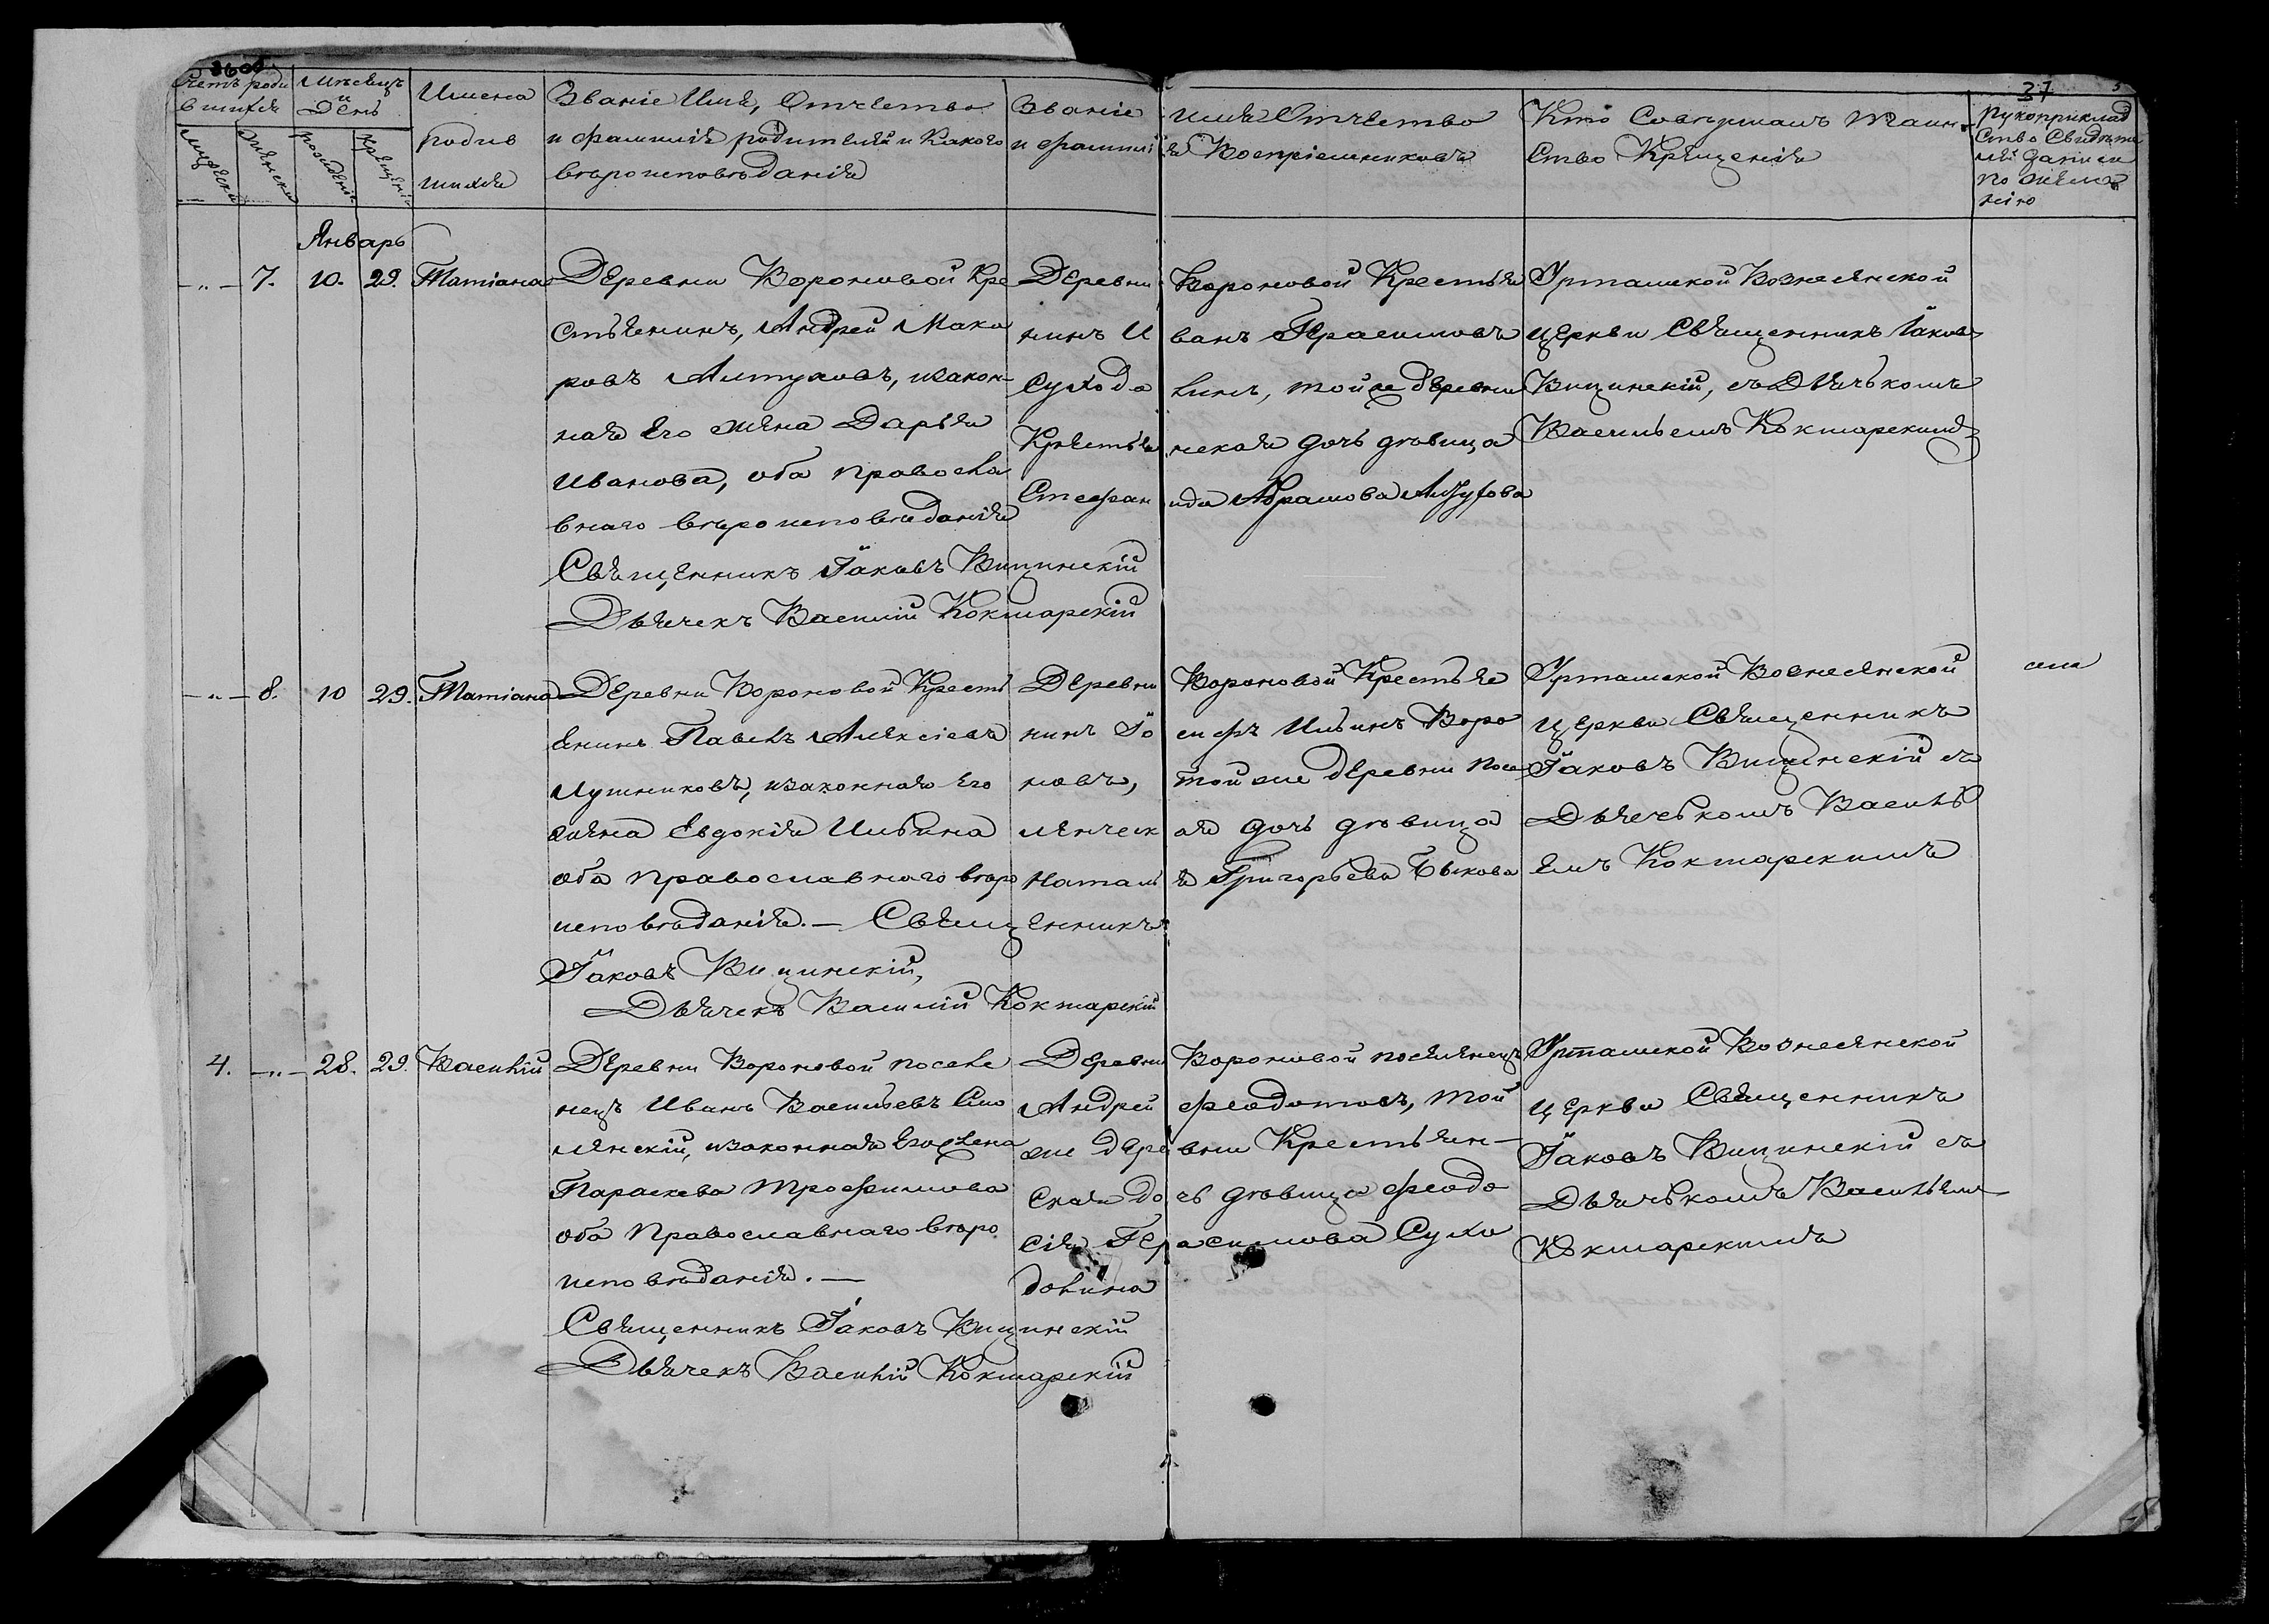 37
Счетъ роди
вшихся
Мужеска
Женска
Мѣсяцъ
и
День
рожденія
Крещенія
Имена
родив
шихся
Званіе Имя, Отчество
и фамилія родителей и Какого
вѣроисповѣданія
Званіе имя Отчество
и фамилія Воспріемниковъ
Кто Совершалъ Таин-
ство Крещенія
Рукоприклад
ство Свидѣте
лей записи
по желанію
Январь
-"- 7. 10. 29. Татіана
Деревни Вороновой Кре
стьянинъ, Андрей Мака
ровъ Алтуховъ, изакон-
ная Его жена Дарья
Иванова, оба правосла
внаго вѣроисповѣданія
Священникъ Іаковъ Вицинскій
Дьячекъ Василій Кокшарскій
Деревни Вороновой Крестья
нинъ Иванъ Герасимовъ
Суходолинъ, тойже деревни
Крестьянская дочь дѣвица
Степанида Абрамова Алтухова
Урташской Вознесенской
церкви Священникъ Іаковъ
Вицинскій, съ Дьячькомъ
Васильемъ Кокшарскимъ
-"- 8. 10 29. Татіана
Деревни Вороновой Кресть
янинъ Павелъ Алексіевъ
Лушниковъ, изаконная Его
жена Евдокія Ильина
оба православнаго вѣро
исповѣданія. — Священникъ
Іаковъ Вицинскій,
Дьячекъ Василій Кокшарскій
Деревни Вороновой Крестья
нинъ Іосифъ Ильинъ Воро
новъ, той же деревни Посе
ленческая дочь дѣвица
Наталья Григорьева Быкова
Урташской Вознесенской
церкви Священникъ
Іаковъ Вицинскій съ
Дьячькомъ Василь
емъ Кокшарскимъ
4. -"- 28. 29. Василій
Деревни Вороновой поселе
нецъ Иванъ Васильевъ Смо
ленскій, изаконная Его жена
Параскева Трофимова
оба Православнаго вѣро
исповѣданія. —
Священникъ Іаковъ Вицинскій
Дьячекъ Василій Кокшарскій
Деревни Вороновой поселенецъ
Андрей Феодотовъ, той
же деревни Крестьян-
ская дочь дѣвица Феодо
сія Герасимова Сухо
долина
Урташской Вознесенской
церкви Священникъ
Іаковъ Вицинскій съ
Дьячькомъ Васильемъ
Кокшарскимъ